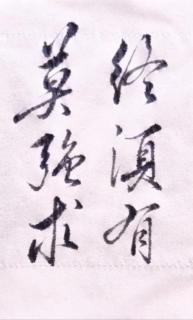 终须有
莫强求